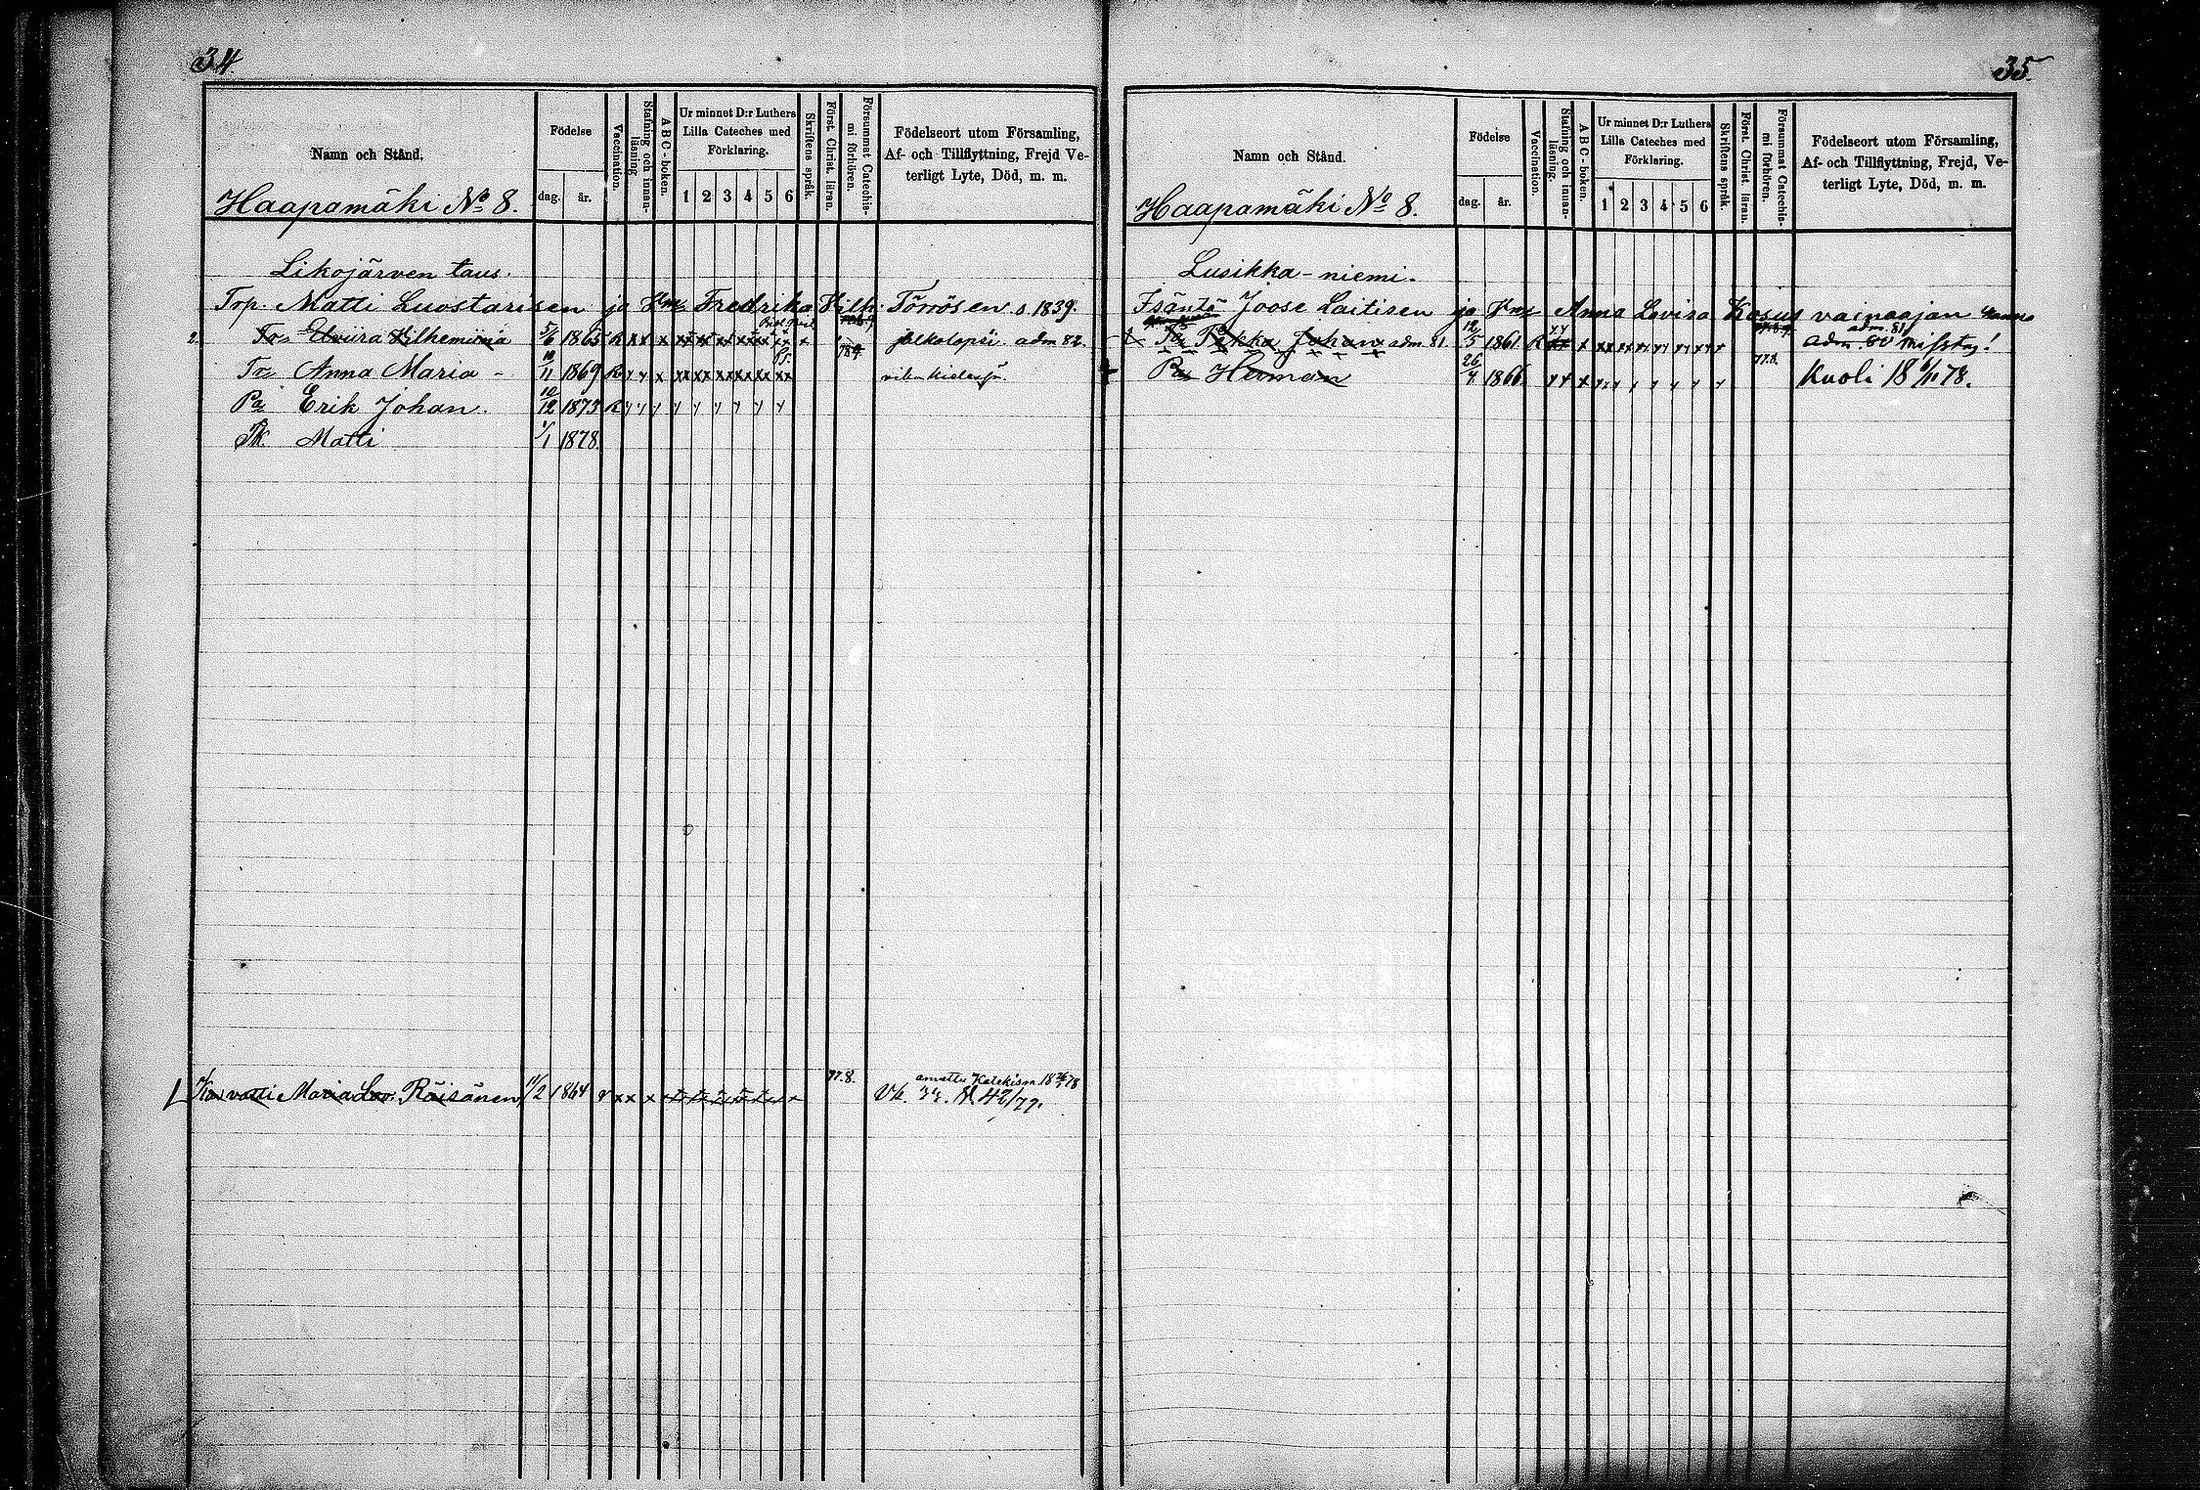 34.
Namn och Stånd.
Haapamäki No 8.
Födelse
dag. år.
Vaccination.
Stafning och innan-läsning
ABC-boken.
Ur minnet D:r Luthers
Lilla Cateches med
Förklaring.
1 2 3 4 5 6
Skriftens språk.
Först. Christ. läran.
Försummat Catechis-mi förhören.
Födelseort utom Församling,
Af- och Tillflyttning, Frejd Ve-
terligt Lyte, Död, m. m.
Likojärven taus.
Trp. Matti Luostarisen ja Hm Fredrika Vilh. Törrösen s 1839.
2. Tr Elviira Vilhemiina 5/6 1865 R xx x xx xx xx xx xx xx x jalkolapsi. adm 82.
Tr Anna Maria - 10/11 1869 R yy x xx xx xx xx xx xx 78.9.
Pa Erik Johan. 10/12 1873 R yy y y y y y y y
Pk. Matti 1/1 1878.
Ka vatti Maria Lov: Räisänen 11/2 1864 r xx x 77.8. annettu Katekism. 18 26/1 78
Vk. H. 42/79.
35.
Namn och Stånd.
Haapamäki No 8.
Födelse
dag. år.
Vaccination.
Stafning och innan-läsning.
ABC-boken.
Ur minnet D:r Luthers
Lilla Cateches med
Förklaring.
1 2 3 4 5 6
Skriftens språk.
Först. Christ. läran.
Försummat Catechis-mi förhören.
Födelseort utom Församling,
Af- och Tillflyttning, Frejd, Ve-
terligt Lyte, Död, m. m.
Lusikka-niemi.
Isäntä Joose Laitisen ja Hm Anna Lovisa Kosus vainaajan
Pa Pekka Johan adm 81. 12/5 1861 R x xx xy yy yy yy yy y adm. 81
adm. 80 misstag!
Pa Herman 26/4 1866 yy x yy y y y y y y 77.8. Kuoli 18 6/11 78.